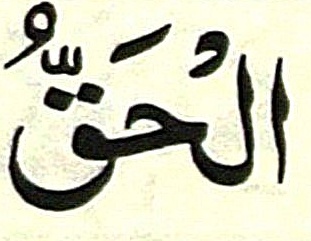 الْحَقُّ